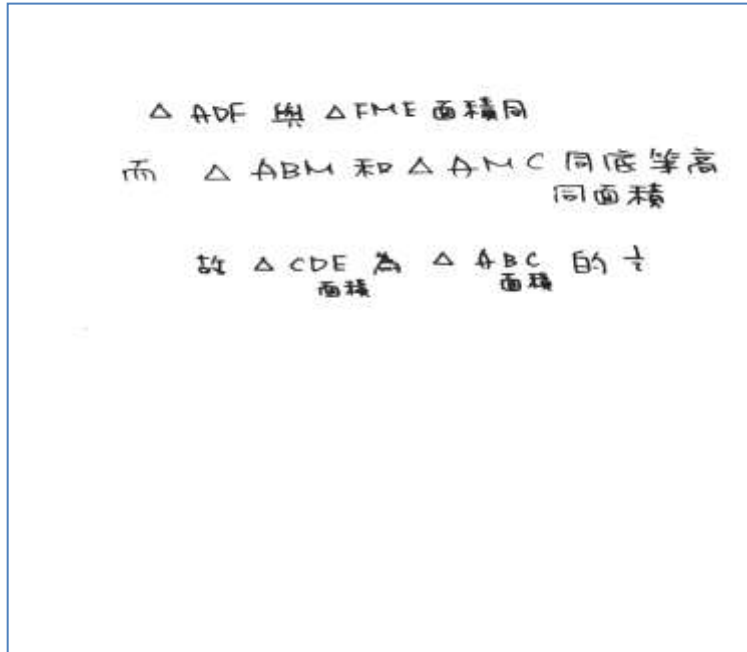 △ ADF 與 △ FME 面積同
而 △ ABM 和 △ AMC 同底等高
同面積
故 △ CDE 為 △ ABC 的 1/2
面積 面積